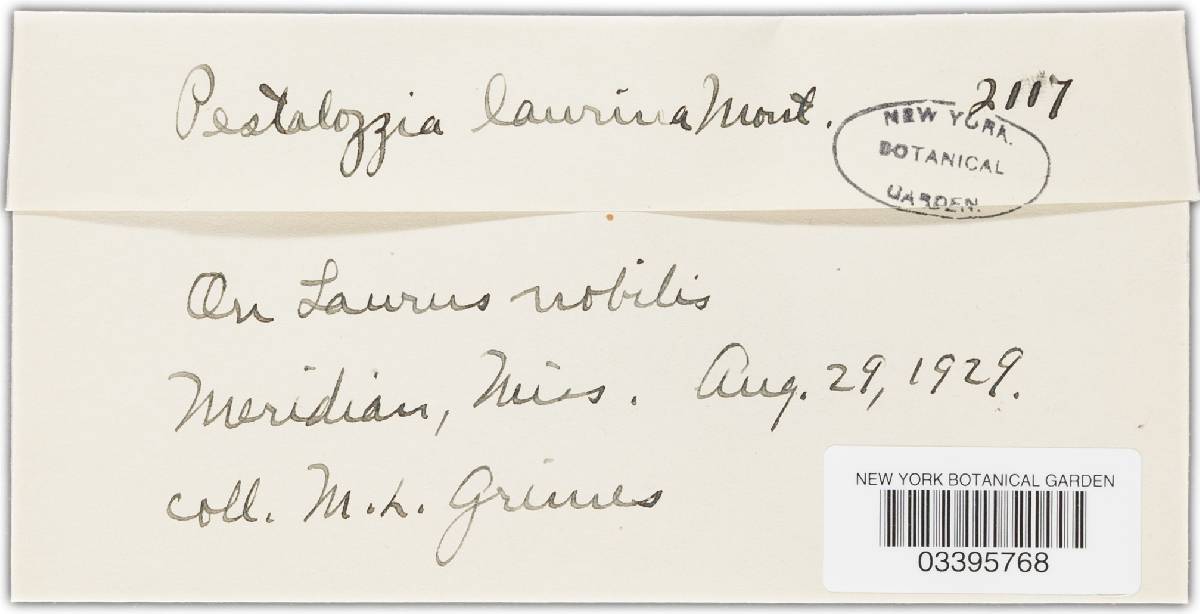 Pestalozzia laurina Mont. 2117
NEW YORK
BOTANICAL
GARDEN.
On Laurus nobilis
Meridian, Miss. Aug. 29, 1929.
coll. M. L. Grimes
NEW YORK BOTANICAL GARDEN
03395768